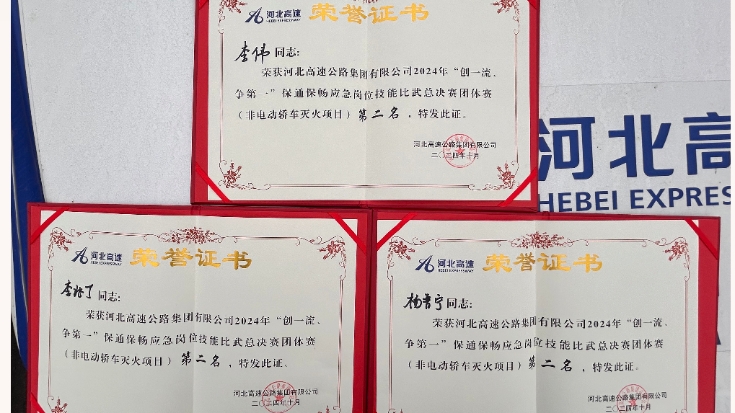 河北高速
荣誉证书
李伟 同志:
荣获河北高速公路集团有限公司2024年“创一流、
争第一”保通保畅应急岗位技能比武总决赛团体赛
(非电动轿车灭火项目)第二名,特发此证。
河北高速公路集团有限公司
二〇二四年十月
河北高
HEBEI EXPRES
河北高速
荣誉证书
同志:
荣获河北高速公路集团有限公司2024年“创一流、
争第一”保通保畅应急岗位技能比武总决赛团体赛
(非电动轿车灭火项目)第二名,特发此证。
河北高速公路集团有限公司
二〇二四年十月
河北高速
荣誉证书
杨晋宁同志:
荣获河北高速公路集团有限公司2024年“创一流、
争第一”保通保畅应急岗位技能比武总决赛团体赛
(非电动轿车灭火项目)第二名,特发此证。
河北高速公路集团有限公司
二〇二四年十月